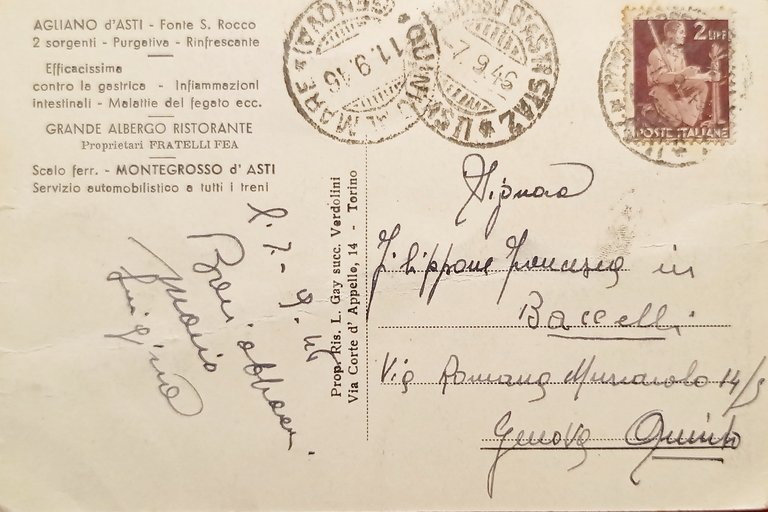 AGLIANO d'ASTI - Fonte S. Rocco
2 sorgenti - Purgativa - Rinfrescante
Efficacissima
contro la gastrica - Infiammazioni
intestinali - Malattie del fegato ecc.
GRANDE ALBERGO RISTORANTE
Proprietari FRATELLI FEA
Scalo ferr. - MONTEGROSSO d' ASTI
Servizio automobilistico a tutti i treni
QUINTO AL MARE (GENOVA)
11.9.46
-7.9.46
2 LIRE
POSTE ITALIANE
Prop. Ris. L. Gay succ. Verdolini
Via Corte d' Appello, 14 - Torino
7-9-46
Mario
Luigina
Signora
Filippone Francesca in
Baccelli
Via Romana 14/5
Genova Quinto